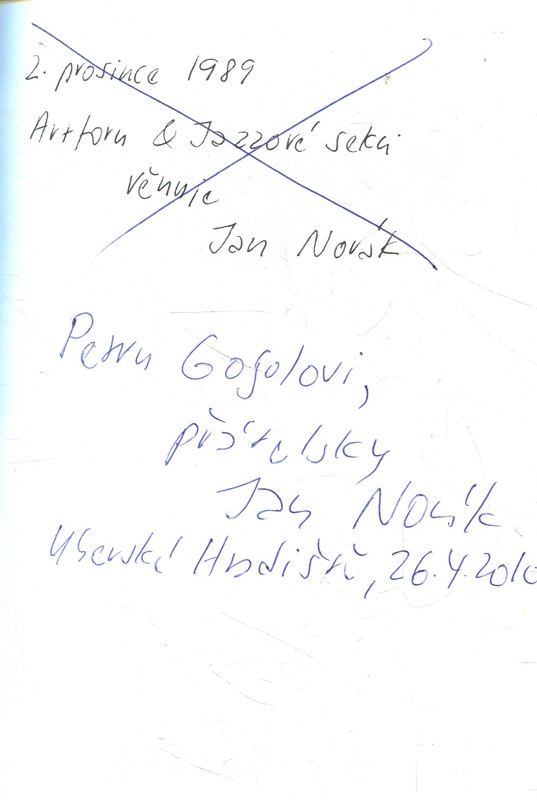 2. prosince 1989
Artforu & Jazzové sekci
věnuje
Jan Novák
Petru Gogolovi,
přátelsky
Jan Novák
Uherské Hradiště, 26.4.2010